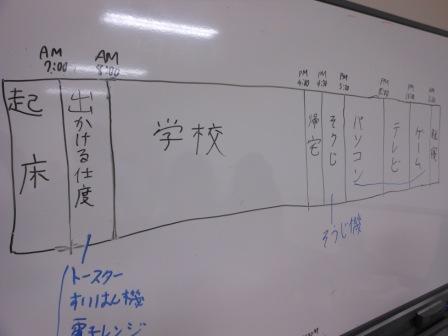 AM
7:00
AM
8:00
PM
PM
PM
PM
起床
出かける仕度
学校
帰宅
そうじ
パソコン
テレビ
ゲーム
そうじ機
トースター
すいはん機
電子レンジ